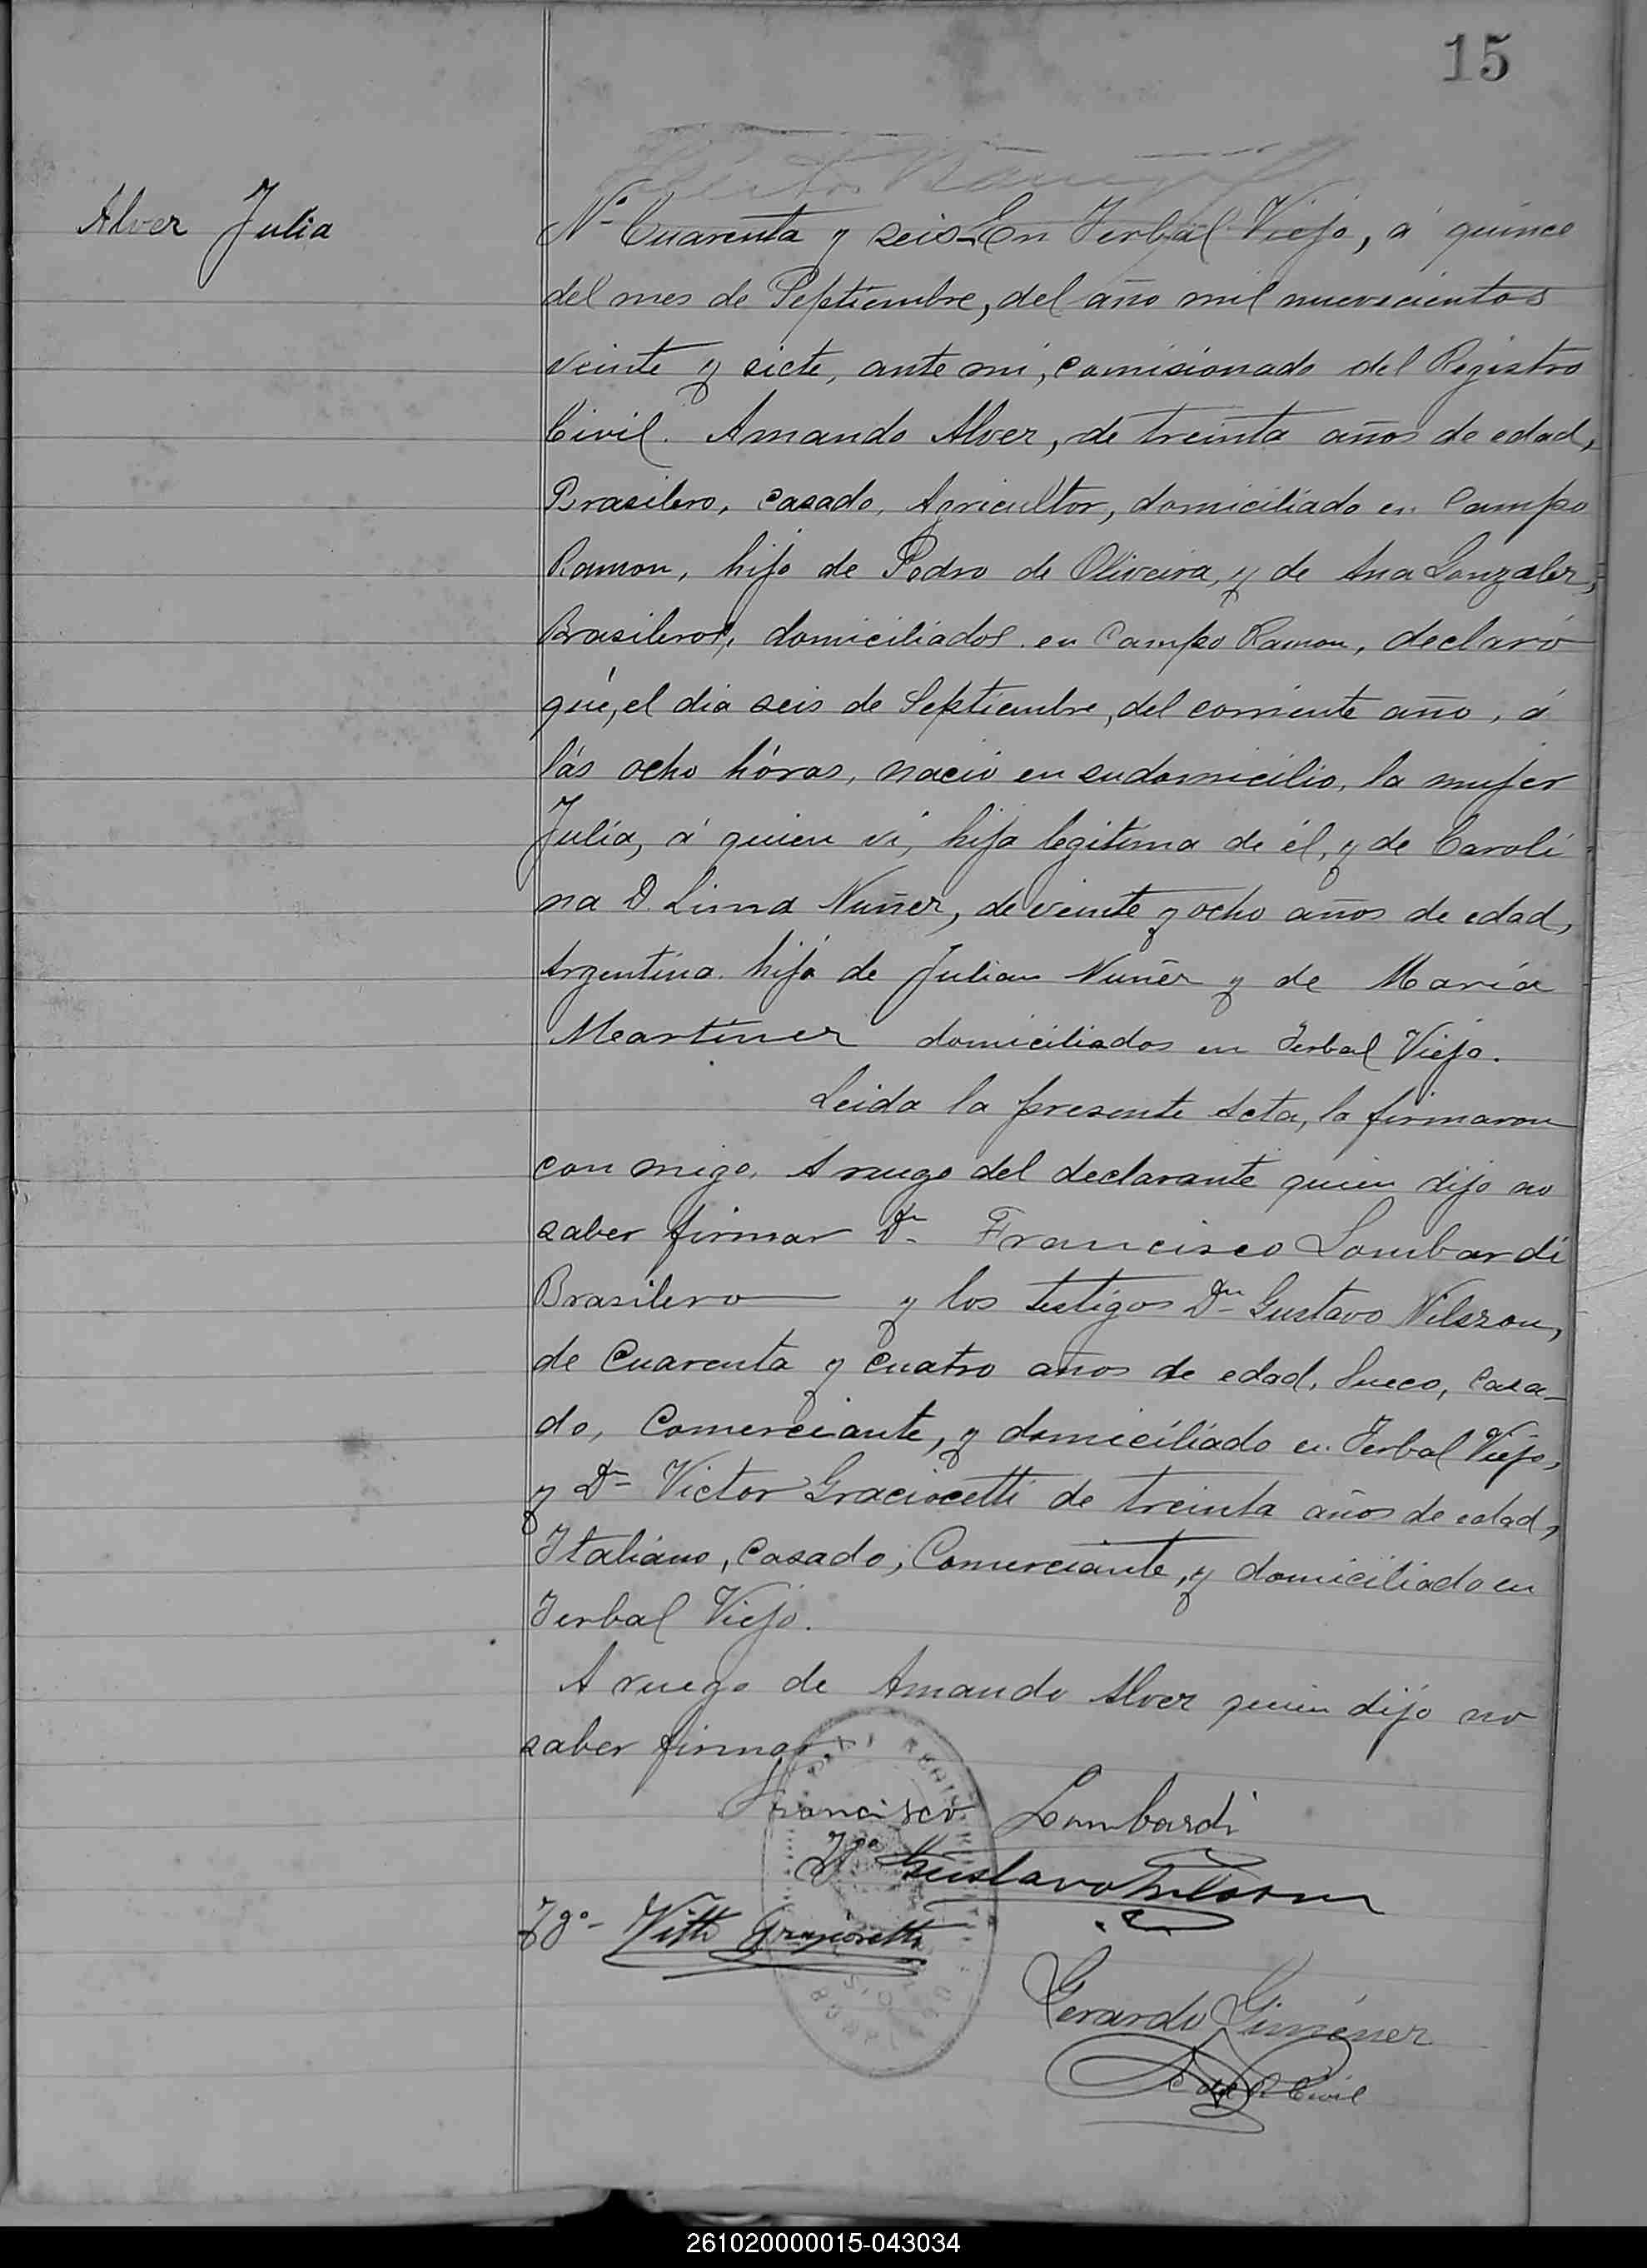 15
Alvez Julia
Nº Cuarenta y seis. En Yerbal Viejo, á quince
del mes de Septiembre, del año mil nuevecientos
veinte y siete, ante mi, comisionado del Registro
Civil. Amando Alvez, de treinta años de edad,
Brasilero, casado, Agricultor, domiciliado en Campo
Ramon, hijo de Pedro de Oliveira, y de Ana Gonzalez,
Brasileros, domiciliados en Campo Ramon, declaró
qué, el dia seis de Septiembre, del corriente año, á
lás ocho hóras, nació en su domicilio, la mujer
Julia, á quien ví, hija legitima de él, y de Caroli
na D. Lima Nuñez, de veinte y ocho años de edad,
Argentina hija de Julian Nuñez y de María
Martinez domiciliados en Yerbal Viejo.
Leida la presente Acta, la firmaron
con migo. A ruego del declarante quien dijo no
saber firmar Dn Francisco Lombardi
Brasilero y los testigos Dn Gustavo Nilszon,
de Cuarenta y cuatro años de edad, Sueco, Casa-
do, Comerciante, y domiciliado en Yerbal Viejo,
y Dn Victor Graciocetti de treinta años de edad,
Italiano, Casado, Comerciante, y domiciliado en
Yerbal Viejo.
A ruego de Amando Alvez quien dijo no
saber firmar.
Francisco Lombardi
Tgo Gustavo Nilsson
Tgo- Gerardo Giménez
C del R. Civil
261020000015-043034